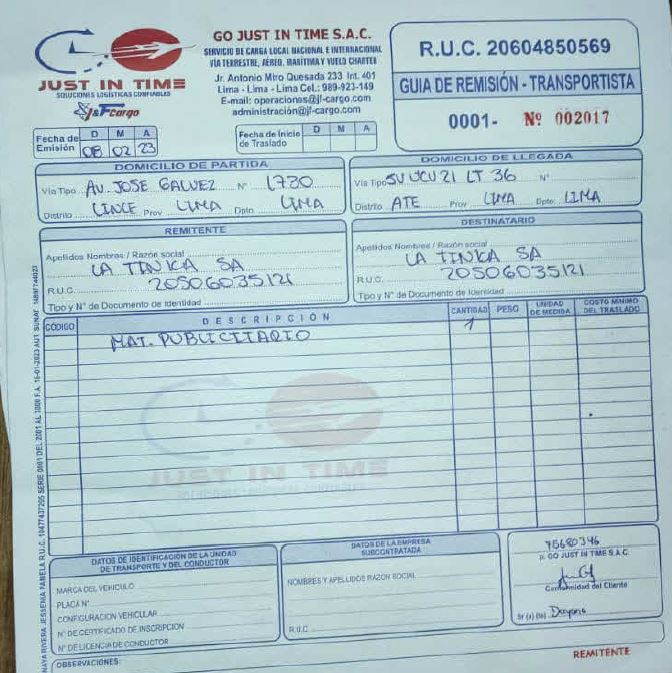 GO JUST IN TIME S.A.C.
SERVICIO DE CARGA LOCAL NACIONAL E INTERNACIONAL
VÍA TERRESTRE, AÉREO, MARÍTIMA Y VUELO CHARTER
Jr. Antonio Miro Quesada 233 Int. 401
Lima - Lima - Lima Cel.: 989-923-149
E-mail: operaciones@jf-cargo.com
administración@jf-cargo.com
JUST IN TIME
SOLUCIONES LOGÍSTICAS CONFIABLES
J&F Cargo
R.U.C. 20604850569
GUIA DE REMISIÓN - TRANSPORTISTA
0001- Nº 002017
Fecha de Emisión D M A
08 02 23
Fecha de Inicio de Traslado D M A
DOMICILIO DE PARTIDA
Vía Tipo AV. JOSE GALVEZ Nº 1730
Distrito LINCE Prov LIMA Dpto LIMA
DOMICILIO DE LLEGADA
Vía Tipo LT 36 Nº
Distrito ATE Prov LIMA Dpto LIMA
REMITENTE
Apellidos Nombres / Razón social
LA TINKA SA
R.U.C. 20506035121
Tipo y N° de Documento de Identidad
DESTINATARIO
Apellidos Nombres / Razón social
LA TINKA SA
R.U.C. 20506035121
Tipo y N° de Documento de Identidad
CÓDIGO DESCRIPCIÓN CANTIDAD PESO UNIDAD DE MEDIDA COSTO MINIMO DEL TRASLADO
MAT. PUBLICITARIO 1
JUST IN TIME
DATOS DE IDENTIFICACIÓN DE LA UNIDAD
DE TRANSPORTE Y DEL CONDUCTOR
MARCA DEL VEHICULO
PLACA N°
CONFIGURACIÓN VEHICULAR
N° DE CERTIFICADO DE INSCRIPCION
N° DE LICENCIA DE CONDUCTOR
DATOS DE LA EMPRESA
SUBCONTRATADA
NOMBRES Y APELLIDOS RAZON SOCIAL
R.U.C.
GO JUST IN TIME S.A.C.
Conformidad del Cliente
Sr (a) (ta) Dayana
OBSERVACIONES:
REMITENTE